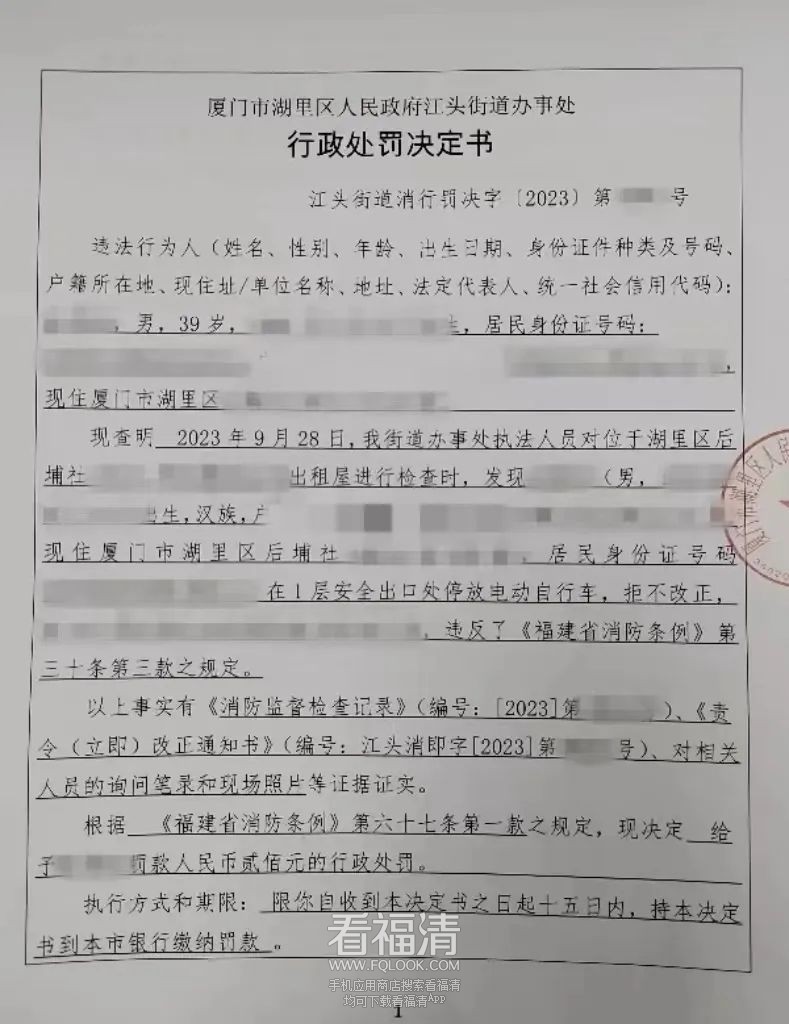 厦门市湖里区人民政府江头街道办事处
行政处罚决定书
江头街道消行罚决字〔2023〕第 号
违法行为人（姓名、性别、年龄、出生日期、身份证件种类及号码、
户籍所在地、现住址/单位名称、地址、法定代表人、统一社会信用代码）：
，男，39岁， 生，居民身份证号码：
，
现住厦门市湖里区
现查明 2023年9月28日，我街道办事处执法人员对位于湖里区后
埔社 出租屋进行检查时，发现 （男，
出生，汉族，户
现住厦门市湖里区后埔社 ，居民身份证号码
在1层安全出口处停放电动自行车，拒不改正，
，违反了《福建省消防条例》第
三十条第三款之规定。
以上事实有《消防监督检查记录》（编号：[2023]第 ）、《责
令（立即）改正通知书》（编号：江头消即字[2023]第 号）、对相关
人员的询问笔录和现场照片等证据证实。
根据 《福建省消防条例》第六十七条第一款之规定，现决定 给
予 罚款人民币贰佰元的行政处罚。
执行方式和期限： 限你自收到本决定书之日起十五日内，持本决定
书到本市银行缴纳罚款 。
看福清
WWW.FQLOOK.COM
手机应用商店搜索看福清
均可下载看福清App
1
厦门市湖里区人民